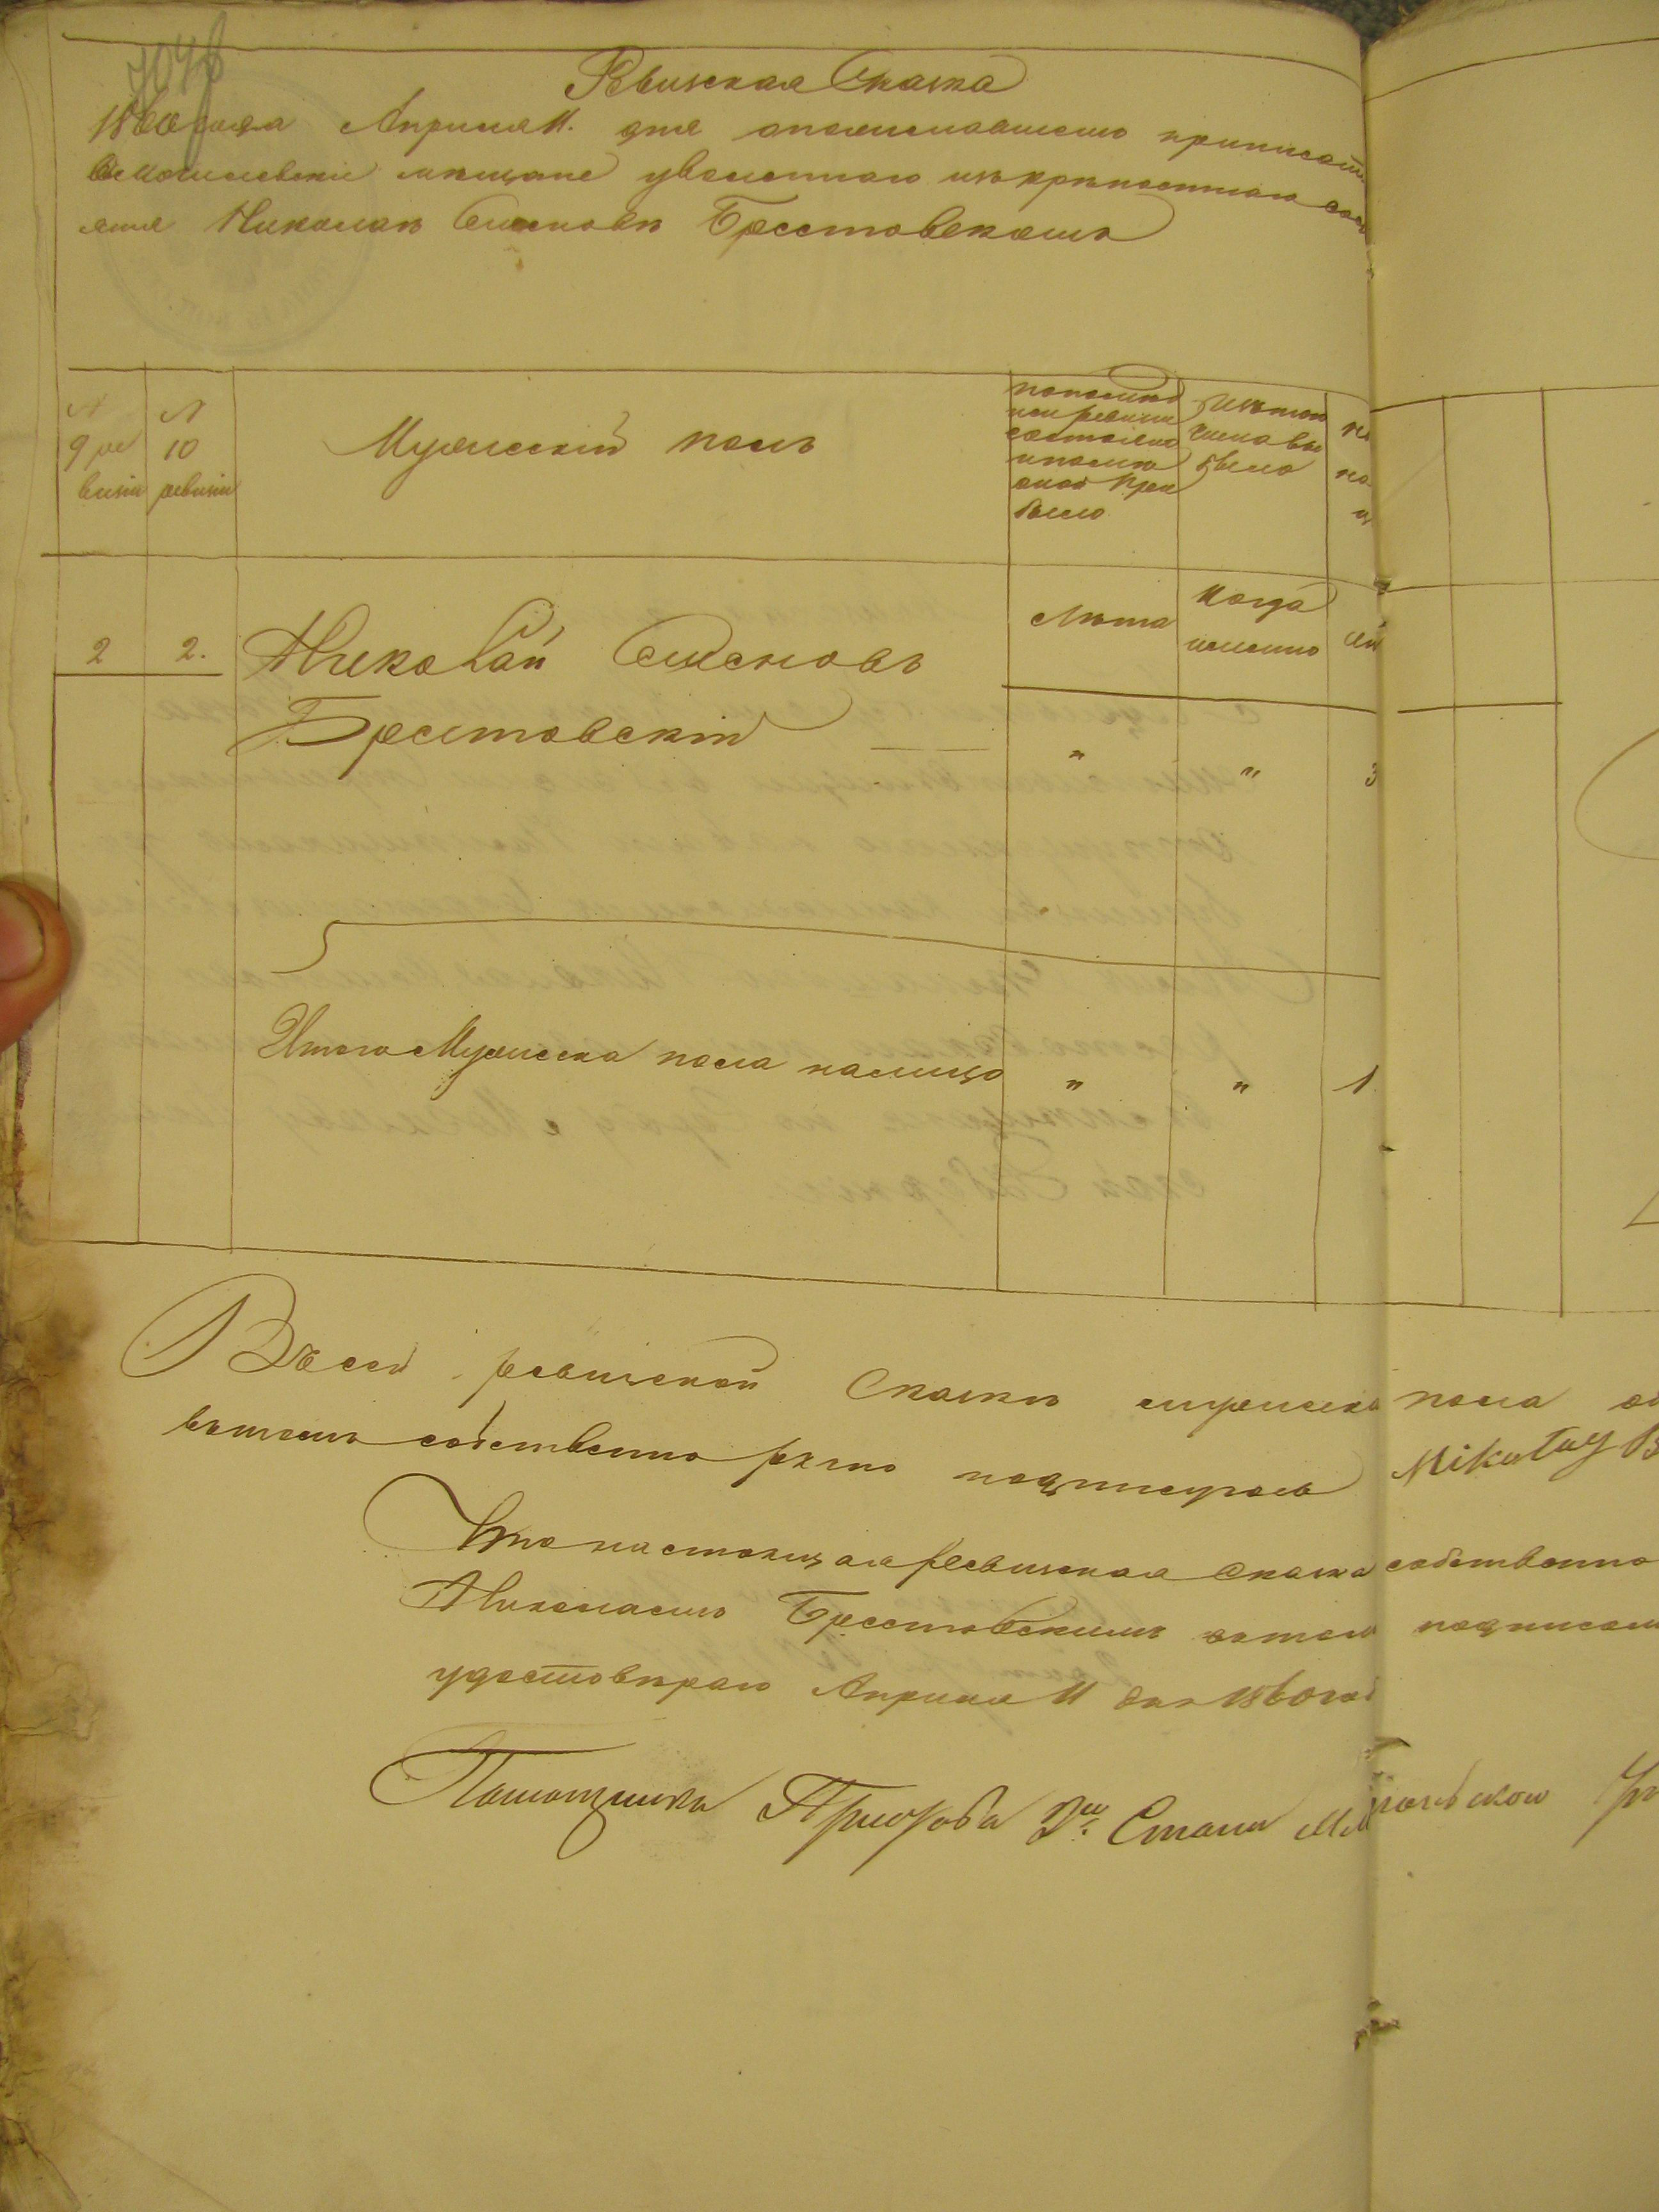 Ревизская Сказка
1860 года Апреля 11. дня о пожелавшемъ приписаться
въ Могилевскіе мещане уволеннаго изъ крѣпостнаго состо
янія Николаѣ Семеновѣ Брестовскомъ
№
9 ре
визіи
№
10
ревизіи
Мужескій полъ
по послед
ней ревизіи
состояло
и после
оной при
было
Изъ того
числа вы
было
Лѣта
Когда
именно
2
2.
Николай Семеновъ
Брестовскій
"
"
3
Итого Мужеска пола налицо
"
"
1
Въ сей ревизской Сказкѣ мужеска пола
въ томъ собственно ручно подписуюсь Mikołay B
Что настоящая ревизская сказка собственно
Николаемъ Брестовскимъ въ томъ подписан
удостовѣряю Апреля 11 дня 1860 год
Помощникъ Пристава 2й Стана